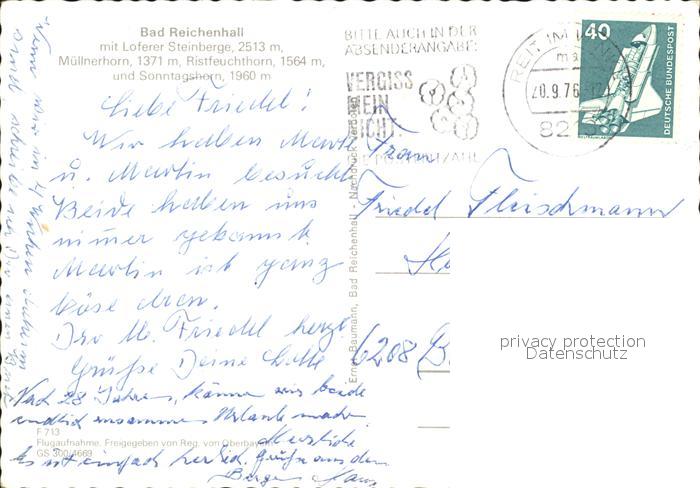 Bad Reichenhall
mit Loferer Steinberge, 2513 m,
Müllnerhorn, 1371 m, Ristfeuchthorn, 1564 m,
und Sonntagshorn, 1960 m
Liebe Friedel!
Wir haben
u. Martin besucht
Beide haben uns
immer gekannt
Martin ist ganz
böse dran.
Dir lb. Friedel herzl
Grüße Deine Lotte
Nach 28 Jahren, können wir beide
endlich zusammen Urlaub machen
Es ist einfach herrlich. Herzliche
Grüße aus den
Bergen
wir in 4 Wochen
F 713
Flugaufnahme. Freigegeben von Reg. von Oberbayern
GS 300/4669
Ernst Baumann, Bad Reichenhall - Nachdruck verboten
BITTE AUCH IN DER
ABSENDERANGABE:
VERGISS
MEIN
NICHT
DIE POSTLEITZAHL
REIT IM WINKL
20.9.76
40
DEUTSCHE BUNDESPOST
Frau
Friedel Fleischmann
6208 B
privacy protection
Datenschutz